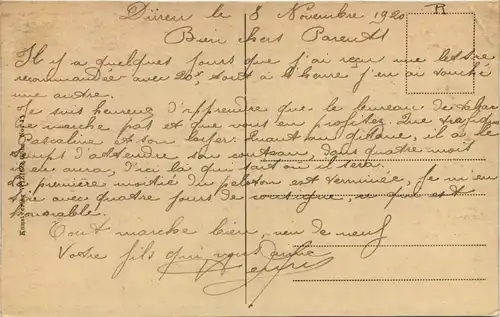 R
Düren le 8 Novembre 1920
Bien chers Parents
Il y a quelques jours que j'ai reçu une lettre
recommandée avec 20f dont à l'heure j'en ai touché
une autre.
Je suis heureux d'apprendre que le bureau de tabac
ne marche pas et que vous en profitez. Que
Pascaline et son
temps d'attendre son dans quatre mois
il aura, d'ici là qui sait où il sera.
La première moitié du peloton est terminée, je m'en
tire avec quatre jours de consigne, ce qui est
honorable.
Tout marche bien, rien de neuf
Votre fils qui vous aime